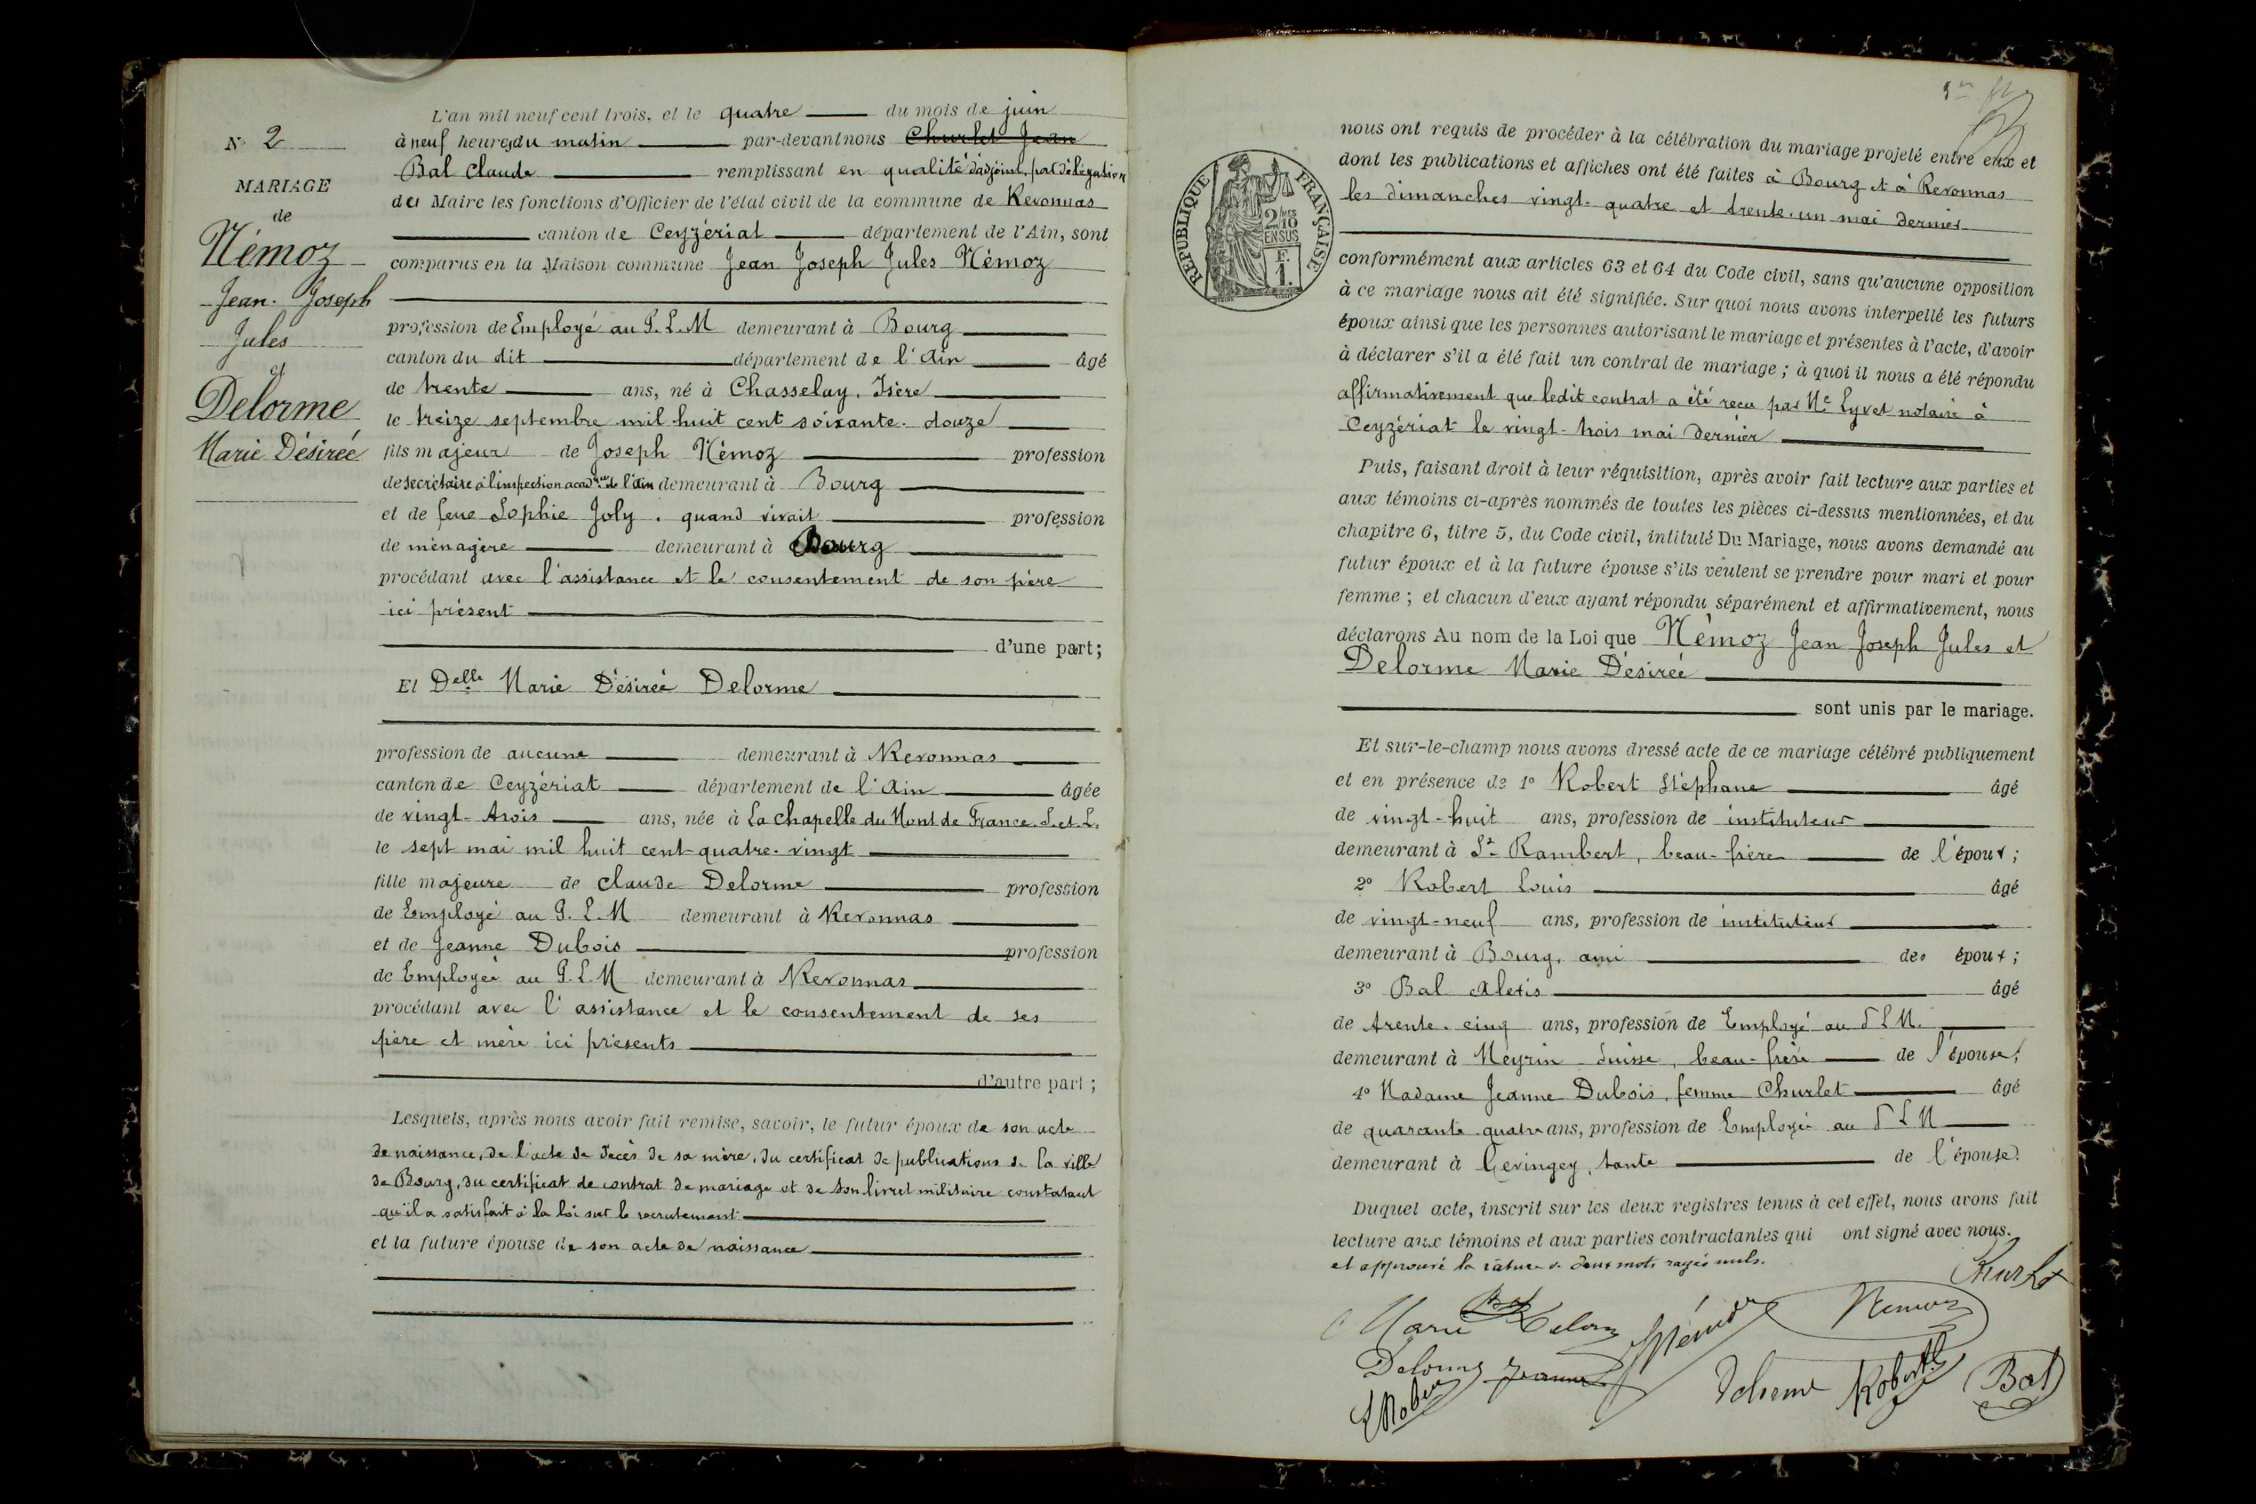 N° 2
MARIAGE
de
Némoz
Jean Joseph
Jules
et
Delorme
Marie Désirée
L'an mil neuf cent trois, et le quatre du mois de juin
à neuf heures du matin par-devant nous Churlet Jean
Bal Claude remplissant en qualité d'adjoint, par délégation
du Maire les fonctions d'Officier de l'état civil de la commune de Revonnas
canton de Ceyzériat département de l'Ain, sont
comparus en la Maison commune Jean Joseph Jules Némoz
profession de Employé au P.L.M demeurant à Bourg
canton du dit département de l'Ain âgé
de trente ans, né à Chasselay, Isère
le treize septembre mil huit cent soixante-douze
fils majeur de Joseph Némoz profession
de secrétaire à l'inspection acad.que de l'Ain demeurant à Bourg
et de feue Sophie Joly, quand vivait profession
de ménagère demeurant à Bourg
procédant avec l'assistance et le consentement de son père
ici présent
d'une part;
Et Delle Marie Désirée Delorme
profession de aucune demeurant à Revonnas
canton de Ceyzériat département de l'Ain âgée
de vingt-trois ans, née à La Chapelle du Mont de France. S. et L.
le sept mai mil huit cent-quatre-vingt
fille majeure de Claude Delorme profession
de Employé au P.L.M demeurant à Revonnas
et de Jeanne Dubois profession
de Employée au P.L.M demeurant à Revonnas
procédant avec l'assistance et le consentement de ses
père et mère ici présents
d'autre part;
Lesquels, après nous avoir fait remise, savoir, le futur époux de son acte
de naissance, de l'acte de décès de sa mère, du certificat de publications de la ville
de Bourg, du certificat de contrat de mariage et de son livret militaire constatant
qu'il a satisfait à la loi sur le recrutement
et la future épouse de son acte de naissance
nous ont requis de procéder à la célébration du mariage projeté entre eux et
dont les publications et affiches ont été faites à Bourg et à Revonnas
les dimanches vingt-quatre et trente-un mai dernier
RÉPUBLIQUE FRANÇAISE
2/10
EN SUS
F.
1.
conformément aux articles 63 et 64 du Code civil, sans qu'aucune opposition
à ce mariage nous ait été signifiée. Sur quoi nous avons interpellé les futurs
époux ainsi que les personnes autorisant le mariage et présentes à l'acte, d'avoir
à déclarer s'il a été fait un contrat de mariage; à quoi il nous a été répondu
affirmativement que ledit contrat a été reçu par Me Lyvet notaire à
Ceyzériat le vingt-trois mai dernier
Puis, faisant droit à leur réquisition, après avoir fait lecture aux parties et
aux témoins ci-après nommés de toutes les pièces ci-dessus mentionnées, et du
chapitre 6, titre 5, du Code civil, intitulé Du Mariage, nous avons demandé au
futur époux et à la future épouse s'ils veulent se prendre pour mari et pour
femme; et chacun d'eux ayant répondu séparément et affirmativement, nous
déclarons Au nom de la Loi que Némoz Jean Joseph Jules et
Delorme Marie Désirée
sont unis par le mariage.
Et sur-le-champ nous avons dressé acte de ce mariage célébré publiquement
et en présence de 1° Robert Stéphane âgé
de vingt-huit ans, profession de instituteur
demeurant à St Rambert, beau-frère de l'époux;
2° Robert Louis âgé
de vingt-neuf ans, profession de instituteur
demeurant à Bourg, ami des époux;
3° Bal Alexis âgé
de trente-cinq ans, profession de Employé au P L M.
demeurant à Meyrin Suisse, beau-frère de l'épouse;
4° Madame Jeanne Dubois, femme Churlet âgé
de quarante quatre ans, profession de Employée au P L M
demeurant à Gevingey, tante de l'épouse.
Duquel acte, inscrit sur les deux registres tenus à cet effet, nous avons fait
lecture aux témoins et aux parties contractantes qui ont signé avec nous.
et approuvé la rature de deux mots rayés nuls.
Churlet
Marie Delorme Némoz Nemoz
Delorme Jeanne
Robert Delorme Robert Bal